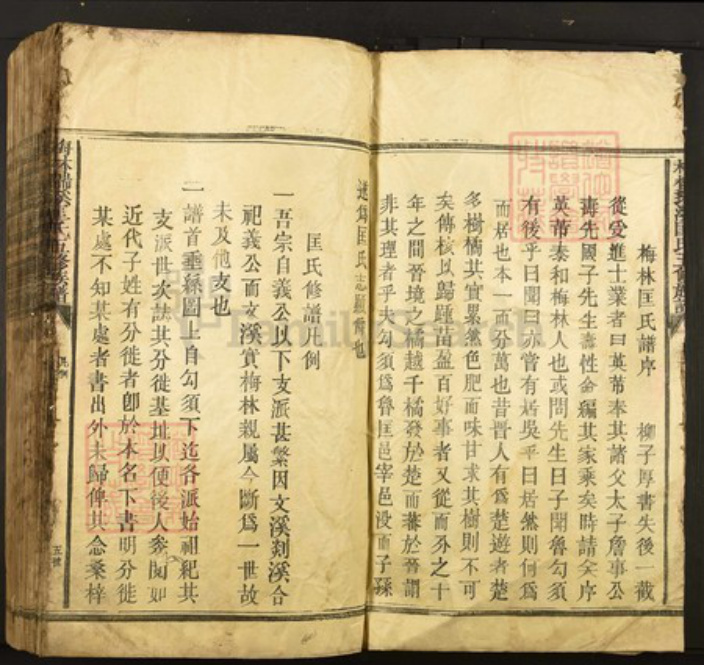 梅林匡氏譜序　柳子厚書失後一截
從受進士業者曰英芾奉其諸父太子詹事公
壽先國子先生壽性命編其家乘矣時請余序
英芾泰和梅林人也或問先生曰子聞魯勾須
有後乎曰聞曰亦嘗有居吳乎曰居然則何爲
而居也本一而分萬也昔晋人有爲楚遊者楚
多樹橘其實纍然色肥而味甘求其樹則不可
矣傳核以歸踵苗盈百好事者又從而分之十
年之間晉境之橘越千橘發於楚而蕃於晉謂
非其理者乎夫勾須爲魯匡邑宰邑没而子孫
述爲匡氏志願脩也
匡氏修譜凡例
一吾宗自義公以下支派甚繁因文溪剡溪合
祀義公而文溪實梅林親屬今斷爲一世故
未及他支也
二譜首垂絲圖上自勾須下迄各派始祖紀其
支派世次誌其分徙基址以便後人叅閲如
近代子姓有分徙者卽於本名下書明分徙
某處不知某處者書出外未歸俾其念桑梓
凡例
五號
FamilySearch